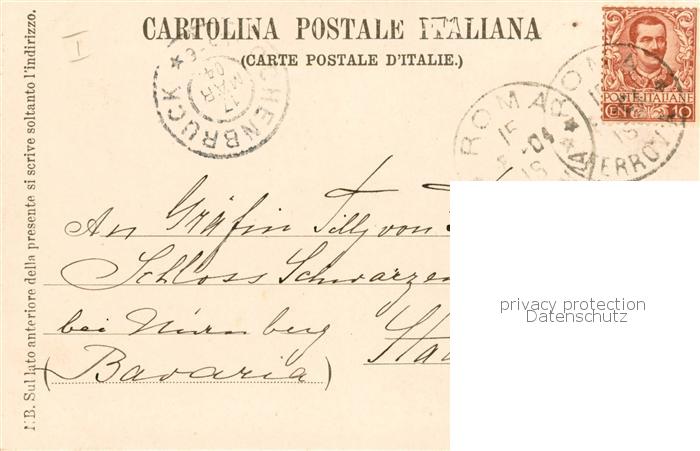 CARTOLINA POSTALE ITALIANA
(CARTE POSTALE D'ITALIE.)
N.B. Sul lato anteriore della presente si scrive soltanto l'indirizzo.
I
17
MAR
04
ROMA
15
04
ROMA
FERROVIA
POSTE ITALIANE
CENT. 10
An Gräfin Tilly von
Schloss Schwarzen
bei Nürnberg
(Bavaria)
privacy protection
Datenschutz